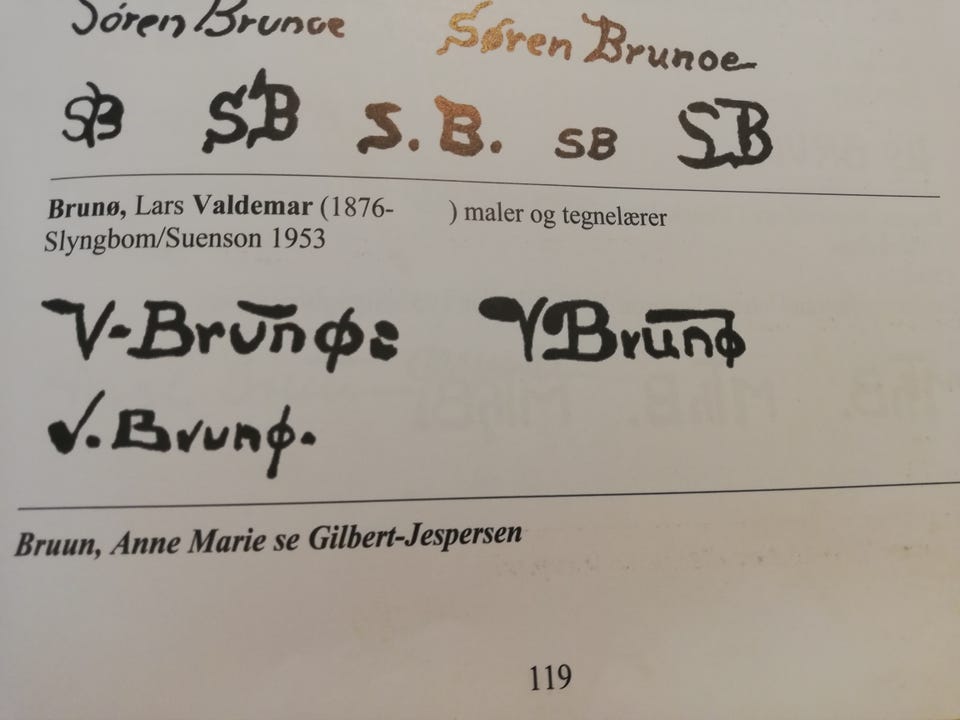 Sóren Brunoe Søren Brunoe
SB SB S. B. SB SB
Brunø, Lars Valdemar (1876- ) maler og tegnelærer
Slyngbom/Suenson 1953
V-Brunøe VBrunø
V. Brunø.
Bruun, Anne Marie se Gilbert-Jespersen
119